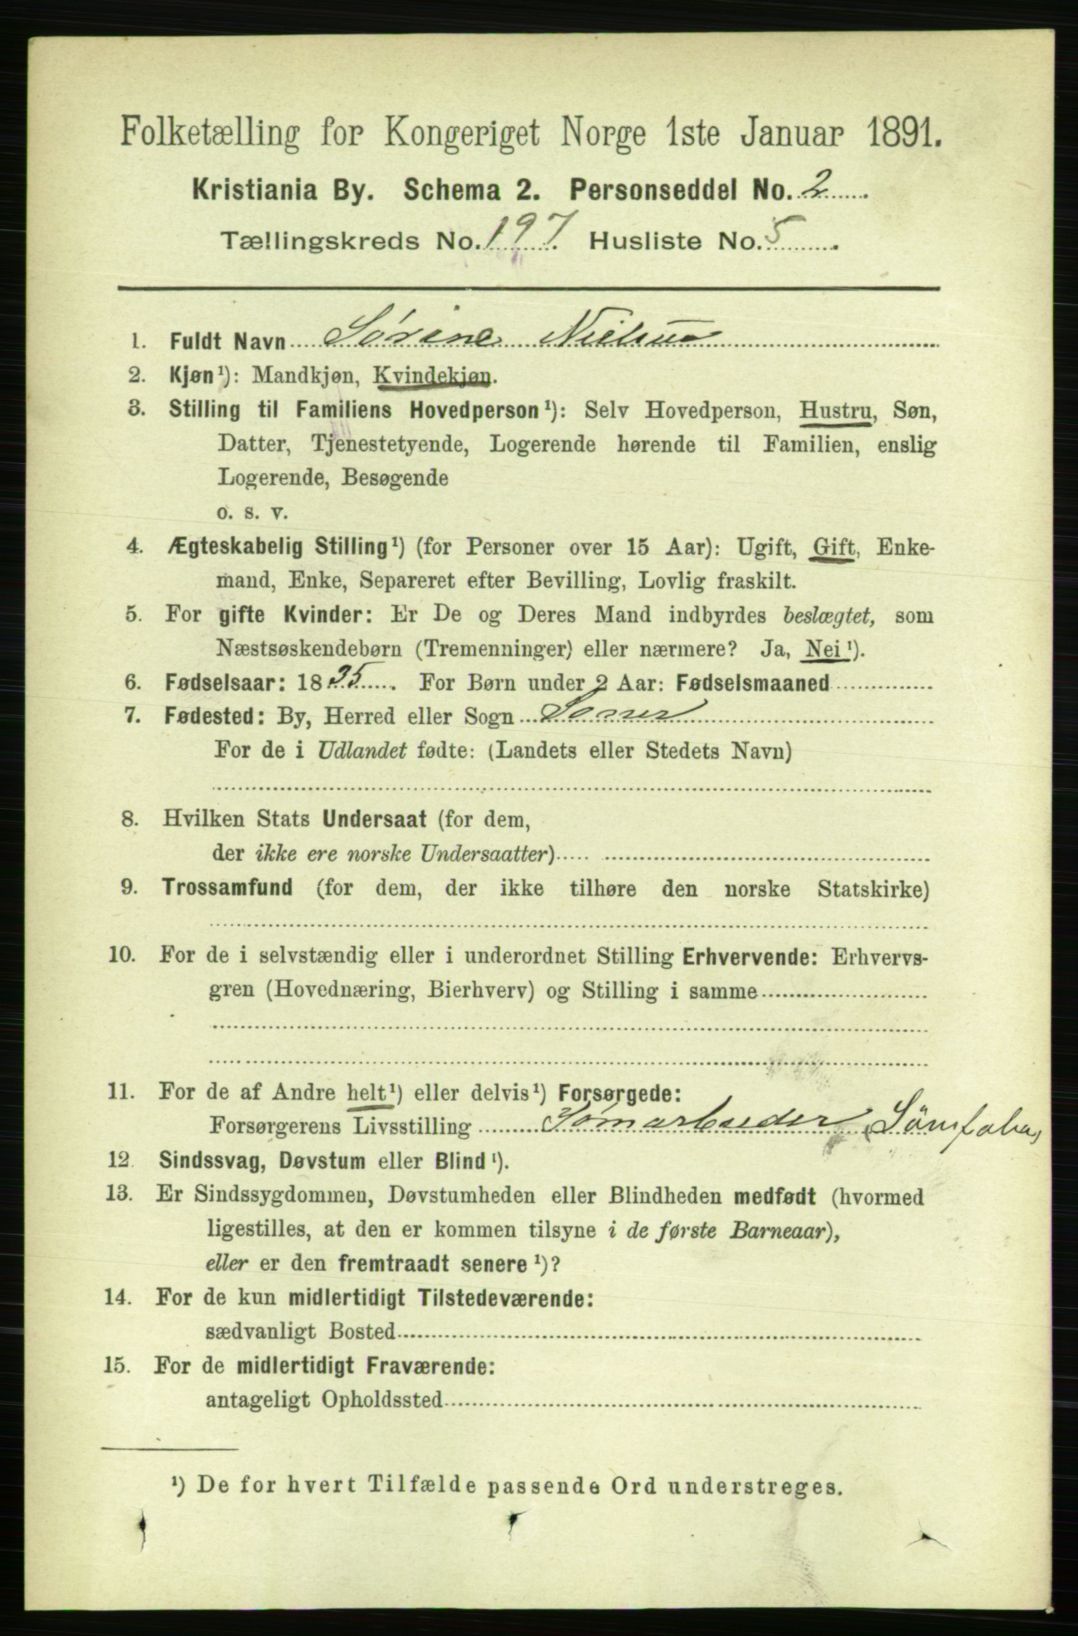 Folketælling for Kongeriget Norge 1ste Januar 1891.
Kristiania By. Schema 2. Personseddel No. 2
Tællingskreds No. 197. Husliste No. 5
1. Fuldt Navn Sørine Nielsen
2. Kjøn¹): Mandkjøn, Kvindekjøn.
3. Stilling til Familiens Hovedperson¹): Selv Hovedperson, Hustru, Søn,
Datter, Tjenestetyende, Logerende hørende til Familien, enslig
Logerende, Besøgende
o. s. v.
4. Ægteskabelig Stilling¹) (for Personer over 15 Aar): Ugift, Gift, Enke-
mand, Enke, Separeret efter Bevilling, Lovlig fraskilt.
5. For gifte Kvinder: Er De og Deres Mand indbyrdes beslægtet, som
Næstsøskendebørn (Tremenninger) eller nærmere? Ja, Nei¹).
6. Fødselsaar: 1835. For Børn under 2 Aar: Fødselsmaaned
7. Fødested: By, Herred eller Sogn
For de i Udlandet fødte: (Landets eller Stedets Navn)
8. Hvilken Stats Undersaat (for dem,
der ikke ere norske Undersaatter)
9. Trossamfund (for dem, der ikke tilhøre den norske Statskirke)
10. For de i selvstændig eller i underordnet Stilling Erhvervende: Erhvervs-
gren (Hovednæring, Bierhverv) og Stilling i samme
11. For de af Andre helt¹) eller delvis¹) Forsørgede:
Forsørgerens Livsstilling
12. Sindssvag, Døvstum eller Blind¹).
13. Er Sindssygdommen, Døvstumheden eller Blindheden medfødt (hvormed
ligestilles, at den er kommen tilsyne i de første Barneaar),
eller er den fremtraadt senere¹)?
14. For de kun midlertidigt Tilstedeværende:
sædvanligt Bosted
15. For de midlertidigt Fraværende:
antageligt Opholdssted
¹) De for hvert Tilfælde passende Ord understreges.